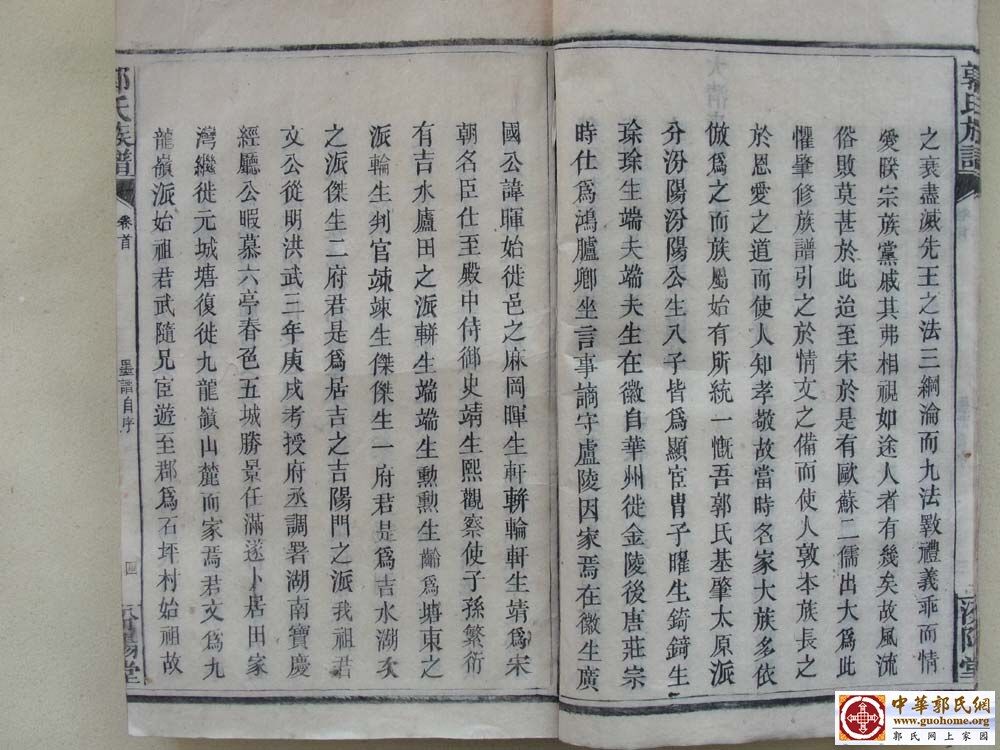 郭氏族譜
汾陽堂
之衰盡滅先王之法三綱淪而九法斁禮義乖而情
愛暌宗族黨戚其弗相視如途人者有幾矣故風流
俗敗莫甚於此迨至宋於是有歐蘇二儒出大爲此
懼肇修族譜引之於情文之備而使人敦本族長之
於恩愛之道而使人知孝敬故當時名家大族多依
倣爲之而族屬始有所統一慨吾郭氏基肇太原派
分汾陽汾陽公生八子皆爲顯宦冑子曜生錡錡生
琭琭生端夫端夫生在徽自華州徙金陵後唐莊宗
時仕爲鴻臚卿坐言事謫守廬陵因家焉在徽生廣
國公諱暉始徙邑之麻岡暉生軒輧輪軒生靖爲宋
朝名臣仕至殿中侍御史靖生熙觀察使子孫繁衍
有吉水廬田之派輧生端端生勲勲生齡爲塘東之
派輪生判官竦竦生傑傑生一府君是爲吉水湖次
之派傑生二府君是爲居吉之吉陽門之派我祖君
文公從明洪武三年庚戌考授府丞調署湖南寶慶
經廳公暇慕六亭春色五城勝景任滿遂卜居田家
灣繼徙元城塘復徙九龍嶺山麓而家焉君文爲九
龍嶺派始祖君武隨兄宦遊至郡爲石坪村始祖故
郭氏族譜
卷首
墨譜自序
四
汾陽堂
中華郭氏網
www.guohome.org
郭氏网上家园